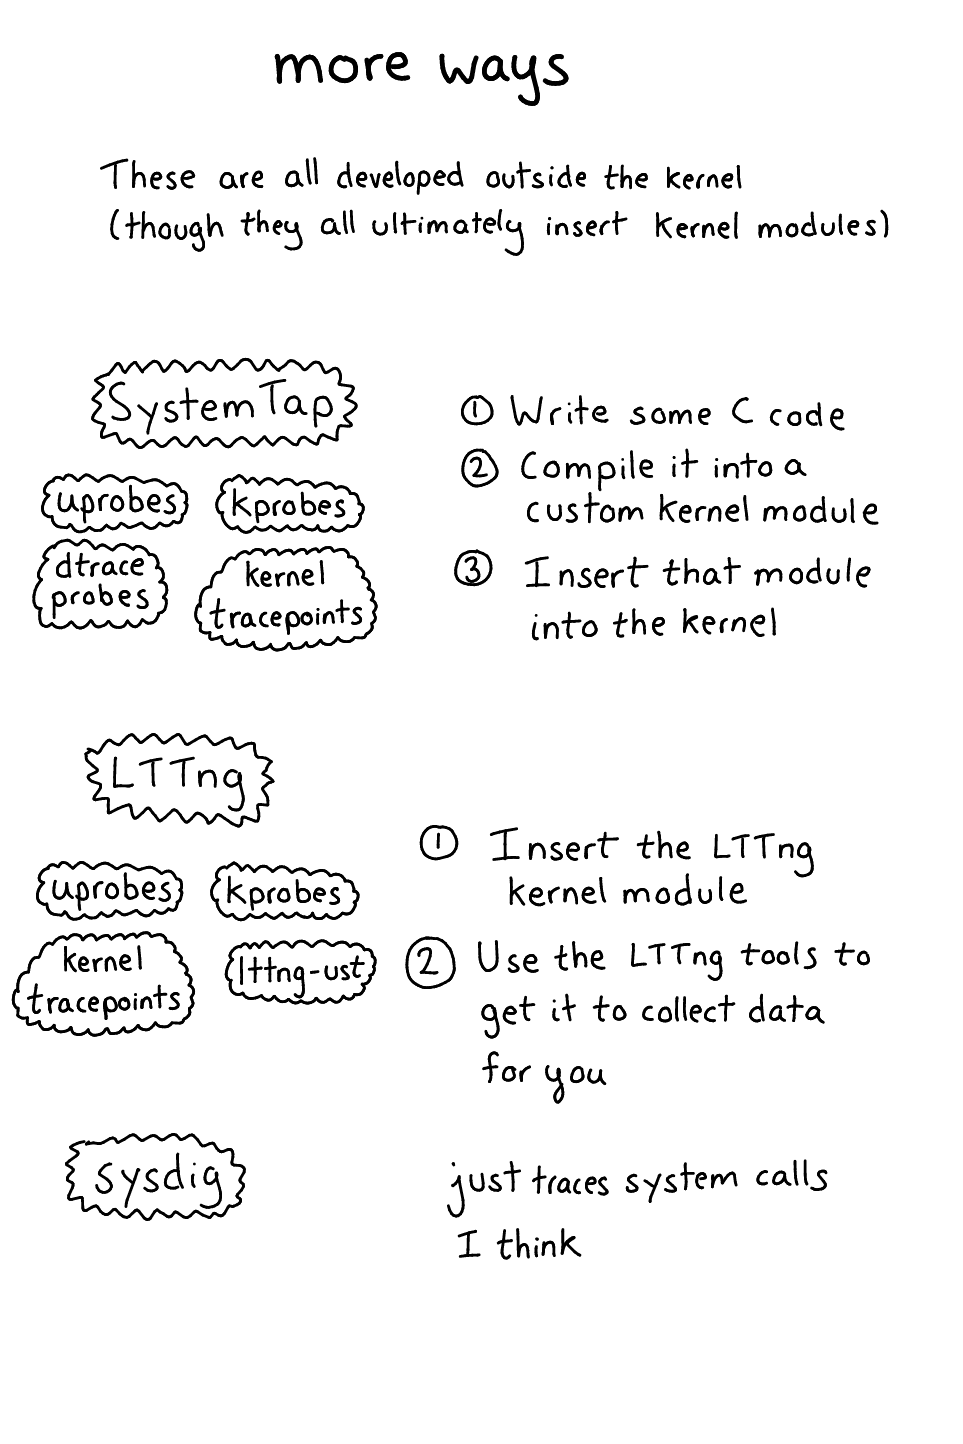 more ways
These are all developed outside the kernel
(though they all ultimately insert kernel modules)
SystemTap
uprobes
kprobes
dtrace
probes
kernel
tracepoints
① Write some C code
② Compile it into a
custom kernel module
③ Insert that module
into the kernel
LTTng
uprobes
kprobes
kernel
tracepoints
lttng-ust
① Insert the LTTng
kernel module
② Use the LTTng tools to
get it to collect data
for you
sysdig
just traces system calls
I think